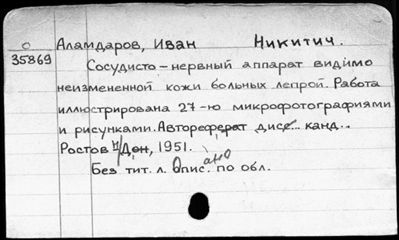 О Аламдаров, Иван Никитич.
35869
Сосудисто-нервный аппарат видимо
неизмененной кожи больных лепрой. Работа
иллюстрирована 27-ю микрофотографиями
и рисунками. Автореферат дисс... канд..
Ростов н/Дон, 1951.
Без тит. л. Описано по обл.